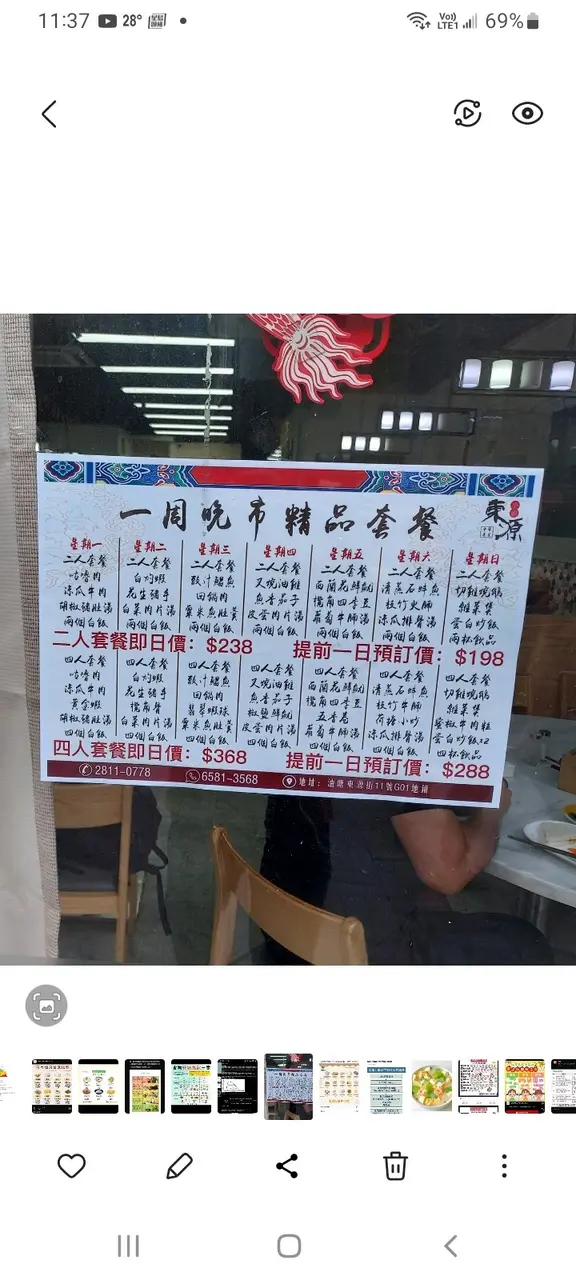 11:37
28°
Vo))
LTE1
69%
一周晚市精品套餐
東源
星期一
二人套餐
咕嚕肉
涼瓜牛肉
胡椒豬肚湯
兩個白飯
星期二
二人套餐
白灼蝦
花生豬手
白菜肉片湯
兩個白飯
星期三
二人套餐
豉汁鯧魚
回鍋肉
粟米魚肚羹
兩個白飯
星期四
二人套餐
叉燒油雞
魚香茄子
皮蛋肉片湯
兩個白飯
星期五
二人套餐
西蘭花鮮魷
欖角四季豆
葡萄牛𦟌湯
兩個白飯
星期六
二人套餐
清蒸石蚌魚
枝竹火腩
涼瓜排骨湯
兩個白飯
星期日
二人套餐
切雞燒鴨
雜菜煲
蛋白炒飯
兩杯飲品
二人套餐即日價：$238
提前一日預訂價：$198
四人套餐
咕嚕肉
涼瓜牛肉
黃金蝦
胡椒豬肚湯
四個白飯
四人套餐
白灼蝦
花生豬手
欖角骨
白菜肉片湯
四個白飯
四人套餐
豉汁鯧魚
回鍋肉
翡翠蝦球
粟米魚肚羹
四個白飯
四人套餐
叉燒油雞
魚香茄子
椒鹽鮮魷
皮蛋肉片湯
四個白飯
四人套餐
西蘭花鮮魷
欖角四季豆
五香卷
葡萄牛𦟌湯
四個白飯
四人套餐
清蒸石蚌魚
枝竹牛腩
荷塘小炒
涼瓜排骨湯
四個白飯
四人套餐
切雞燒鴨
雜菜煲
蜜椒牛肉粒
蛋白炒飯x2
四杯飲品
四人套餐即日價：$368
提前一日預訂價：$288
2811-0778
6581-3568
地址：油塘東源街11號G01地鋪